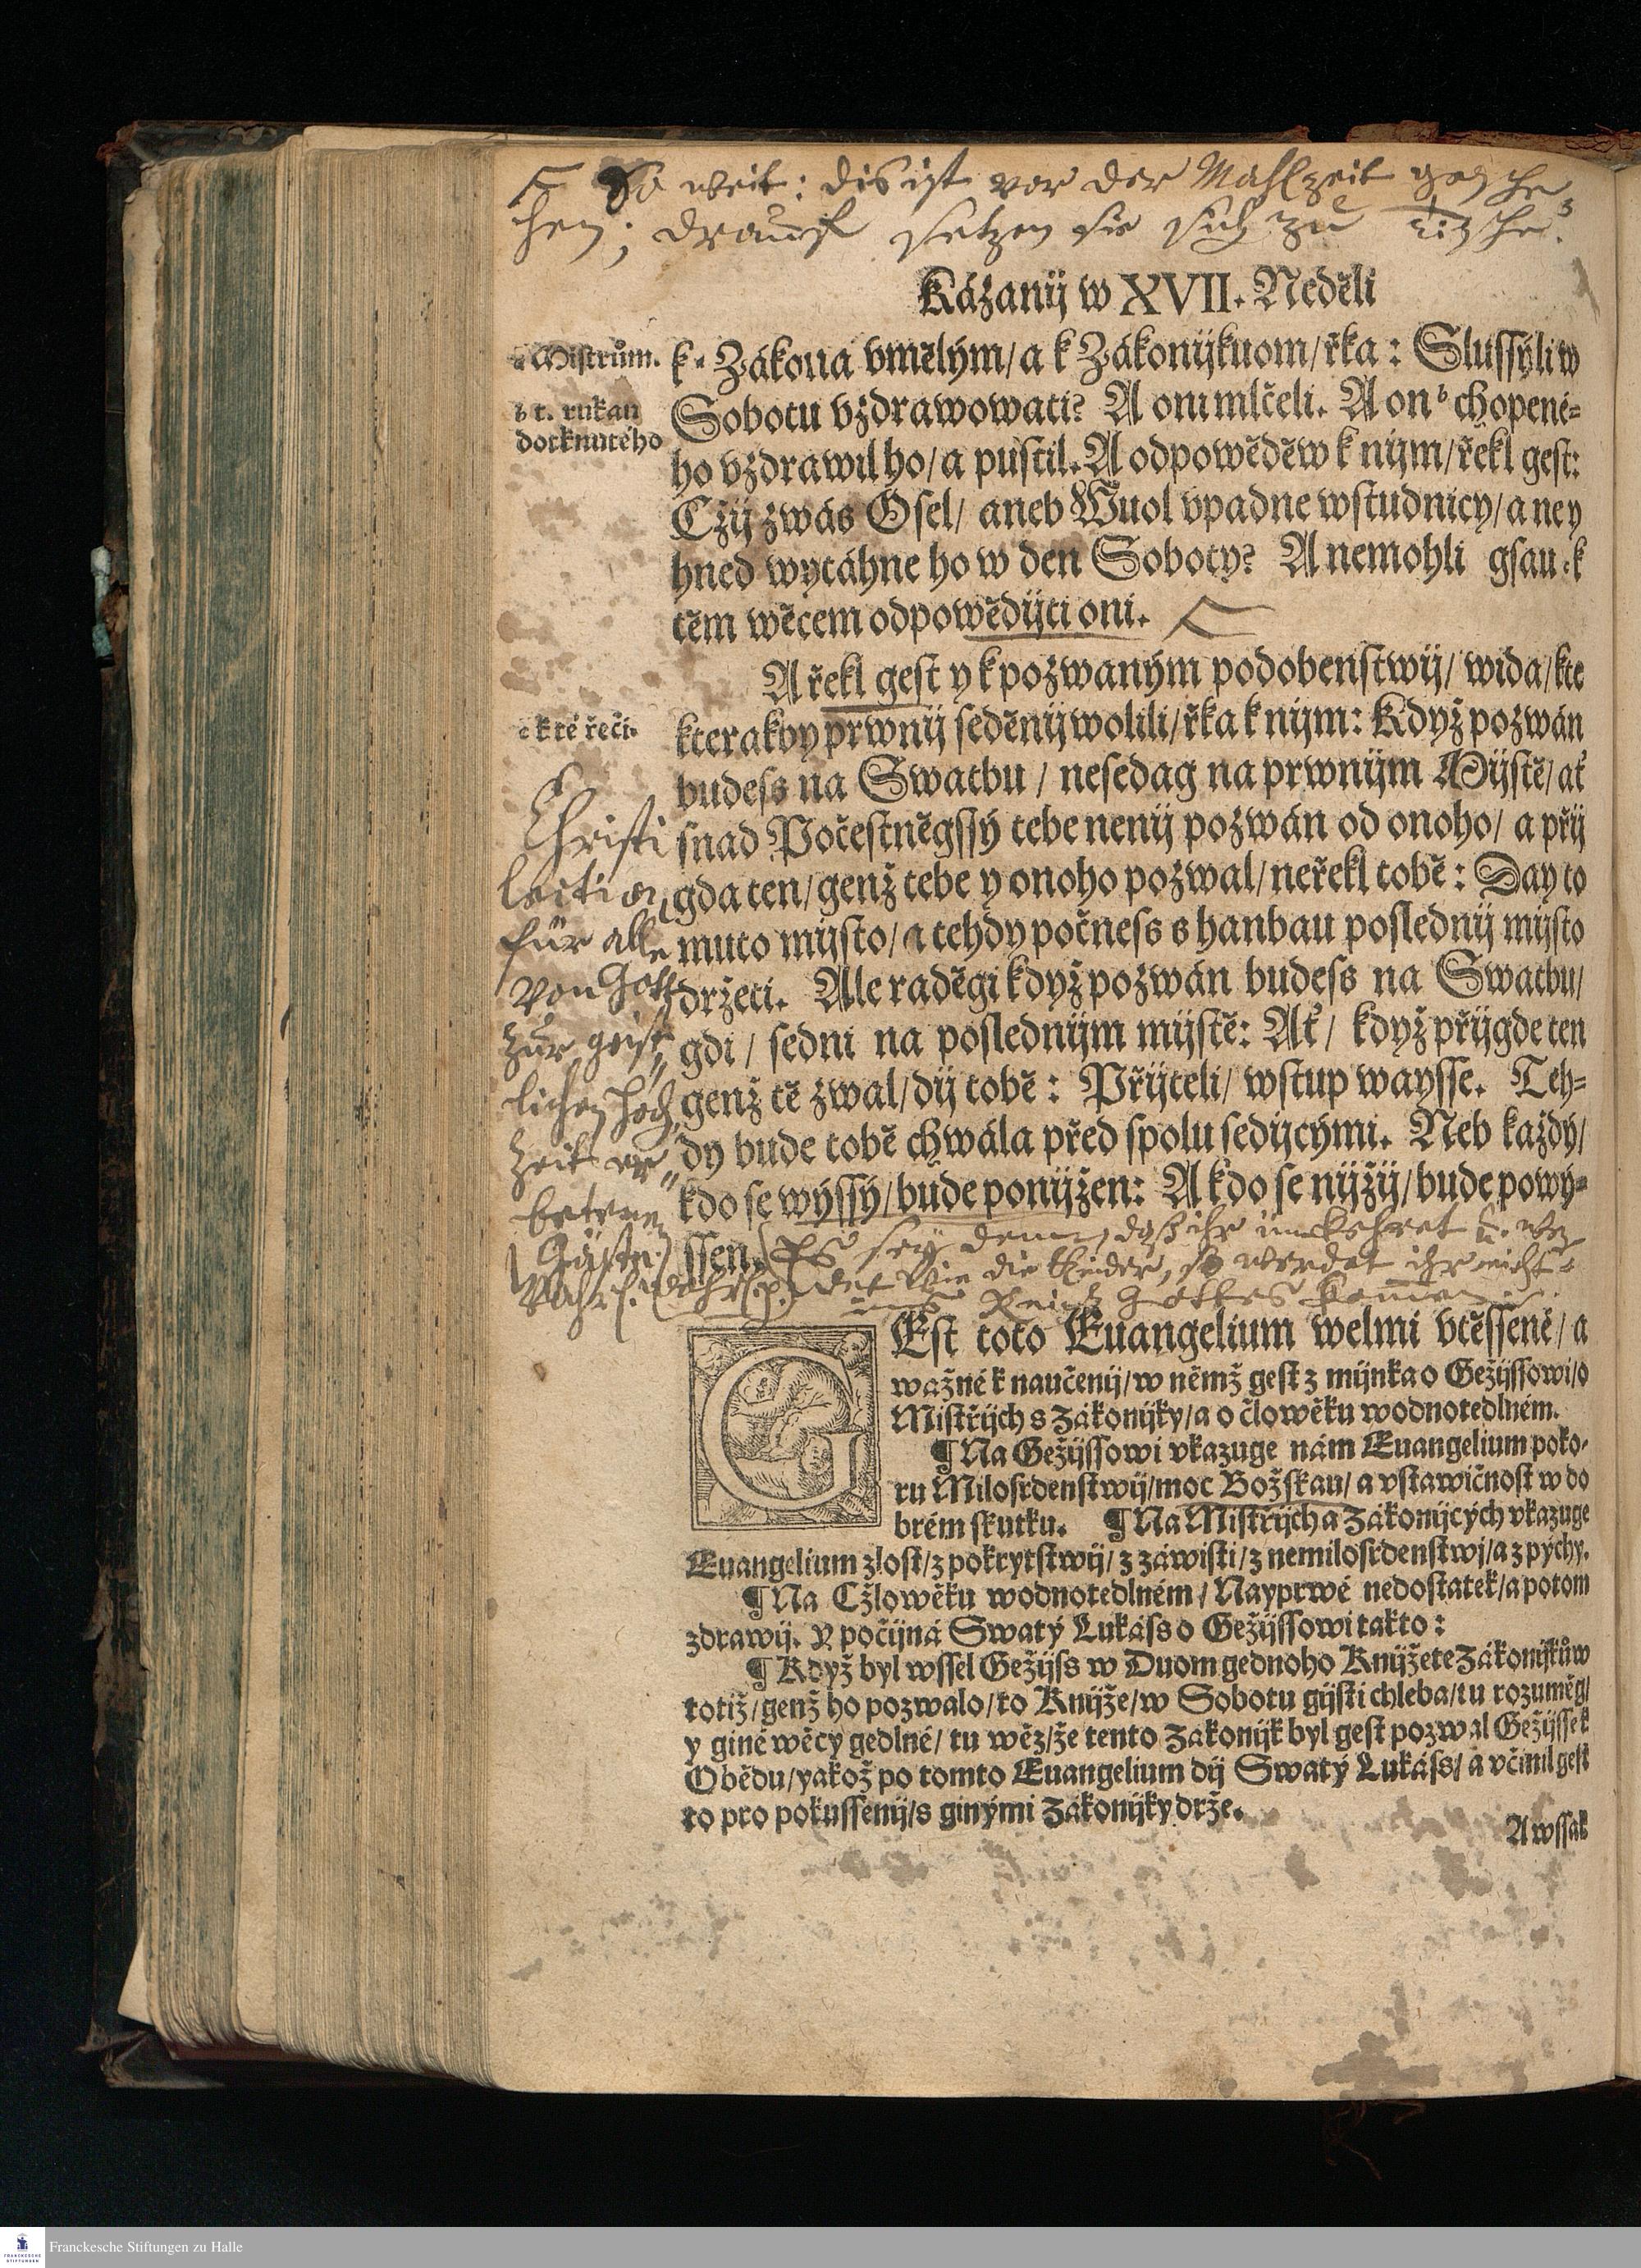 So weit: dis ist vor der Mahlzeit gesche
hen; drauff setzen sie sich zu tische.
Kázanij w XVII. Neděli
a Mistrům.
k a Zákona vmělým/ a k Zákonijkuom/ řka: Slussyli w
b t. rukau
dotknutého
Sobotu vzdrawowati? A oni mlčeli. A on b chopené=
ho vzdrawil ho/ a pustil. A odpowěděw k nijm/ řekl gest:
Cžij z wás Osel/ aneb Wuol vpadne w studnicy/ a ney
hned wytáhne ho w den Soboty? A nemohli gsau c k
těm wěcem odpowědijti oni.
A řekl gest y k pozwaným podobenstwij/ wida/ kte
c k té řeči.
kterakby prwnij seděnij wolili/ řka k nijm: Když pozwán
budess na Swatbu / nesedag na prwnijm Mijstě/ ať
snad Počestněgssý tebe nenij pozwán od onoho/ a přij
gda ten/ genž tebe y onoho pozwal/ neřekl tobě: Day to
muto mijsto/ a tehdy počness s hanbau poslednij mijsto
držeti. Ale raděgi když pozwán budess na Swatbu/
gdi / sedni na poslednijm mijstě: Ať / když přijgde ten
genž tě zwal/ dij tobě: Přijteli/ wstup waysse. Teh=
dy bude tobě chwála před spolu sedijcými. Neb každý/
kdo se wýssý/ bude ponijžen: A kdo se nijžij/ bude powý=
ssen.
Christi
lection
für alle
von Gott
zur geist„
lichen Hoch„
zeit er„
betene
Gäste.
(Es sey denn, daß ihr umkehret u. wer
det wie die Kinder, so werdet ihr nicht
ins Reich Gottes kommen.
Est toto Euangelium welmi vtěssené/ a
wažné k naučenij/ w němž gest z mijnka o Gežijssowi/ o
Mistřijch s Zákonijky/ a o člowěku wodnotedlném.
¶ Na Gežijssowi vkazuge nám Euangelium poko=
ru Milosrdenstwij/ moc Božskau/ a vstawičnost w do
brém skutku. ¶ Na Mistřijch a Zákonijcých vkazuge
Euangelium zlost/ z pokrytstwij/ z záwisti/ z nemilosrdenstwj/ a z pýchy.
¶ Na Cžlowěku wodnotedlném / Nayprwé nedostatek/ a potom
zdrawij. Y počijná Swatý Lukáss o Gežijssowi takto:
¶ Když byl wssel Gežijss w Duom gednoho Knijžete Zákonijkůw
totiž/ genž ho pozwalo/ to Knijže/ w Sobotu gijsti chleba/ tu rozuměg/
y giné wěcy gedlné/ tu wěz/ že tento Zákonijk byl gest pozwal Gežijsse k
Obědu/ yakož po tomto Euangelium dij Swatý Lukáss/ a včinil gest
to pro pokussenij/ s ginými Zákonijky drže.
A wssak
Franckesche Stiftungen zu Halle